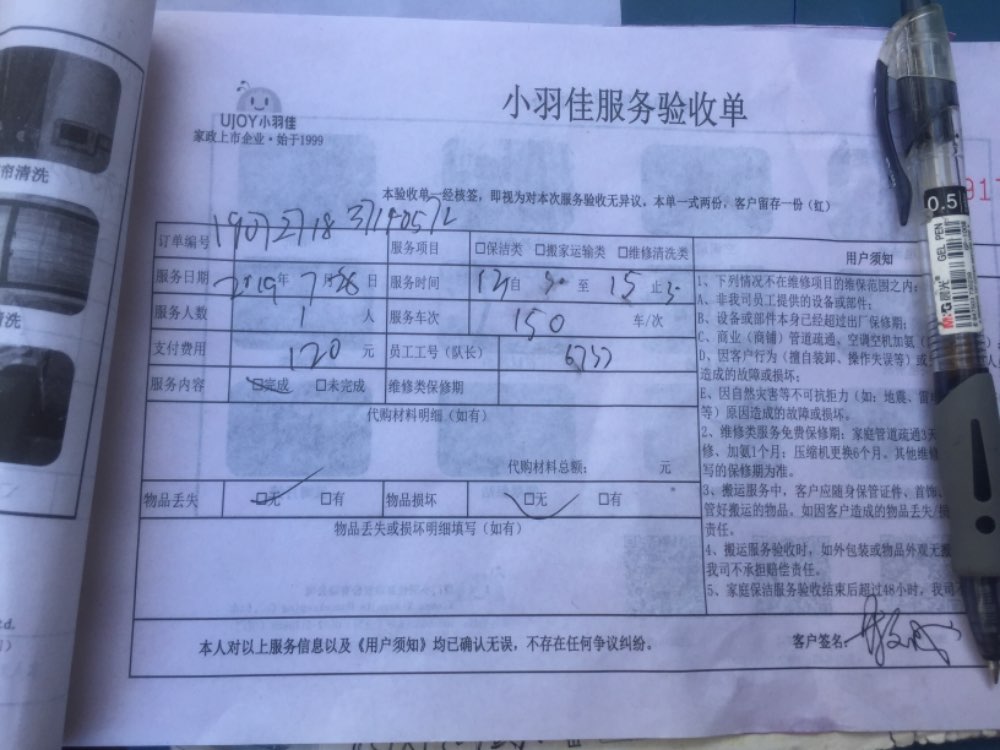 帘清洗
清洗
UJOY小羽佳
家政上市企业·始于1999
小羽佳服务验收单
917
本验收单一经核签，即视为对本次服务验收无异议，本单一式两份，客户留存一份（红）
订单编号
服务项目 □保洁类 □搬家运输类 □维修清洗类
服务日期 2019年 7月28日 服务时间 自 至 15 止
服务人数 1 人 服务车次 150 车/次
支付费用 120 元 员工工号（队长） 6737
服务内容 □完成 □未完成 维修类保修期
代购材料明细（如有）
代购材料总额： 元
物品丢失 □无 □有 物品损坏 □无 □有
物品丢失或损坏明细填写（如有）
用户须知
1、下列情况不在维修项目的维保范围之内：
A、非我司员工提供的设备或部件；
B、设备或部件本身已经超过出厂保修期；
C、商业（商铺）管道疏通，空调空机加氨（
D、因客户行为（擅自装卸、操作失误等）或
造成的故障或损坏；
E、因自然灾害等不可抗拒力（如：地震、雷
等）原因造成的故障或损坏。
2、维修类服务免费保修期：家庭管道疏通3天
修、加氨1个月；压缩机更换6个月。其他维修
写的保修期为准。
3、搬运服务中，客户应随身保管证件、首饰、
管好搬运的物品。如因客户造成的物品丢失/损
责任。
4、搬运服务验收时，如外包装或物品外观无损
我司不承担赔偿责任。
5、家庭保洁服务验收结束后超过48小时，我司不
本人对以上服务信息以及《用户须知》均已确认无误，不存在任何争议纠纷。
客户签名：
0.5
GEL PEN
M&G晨光